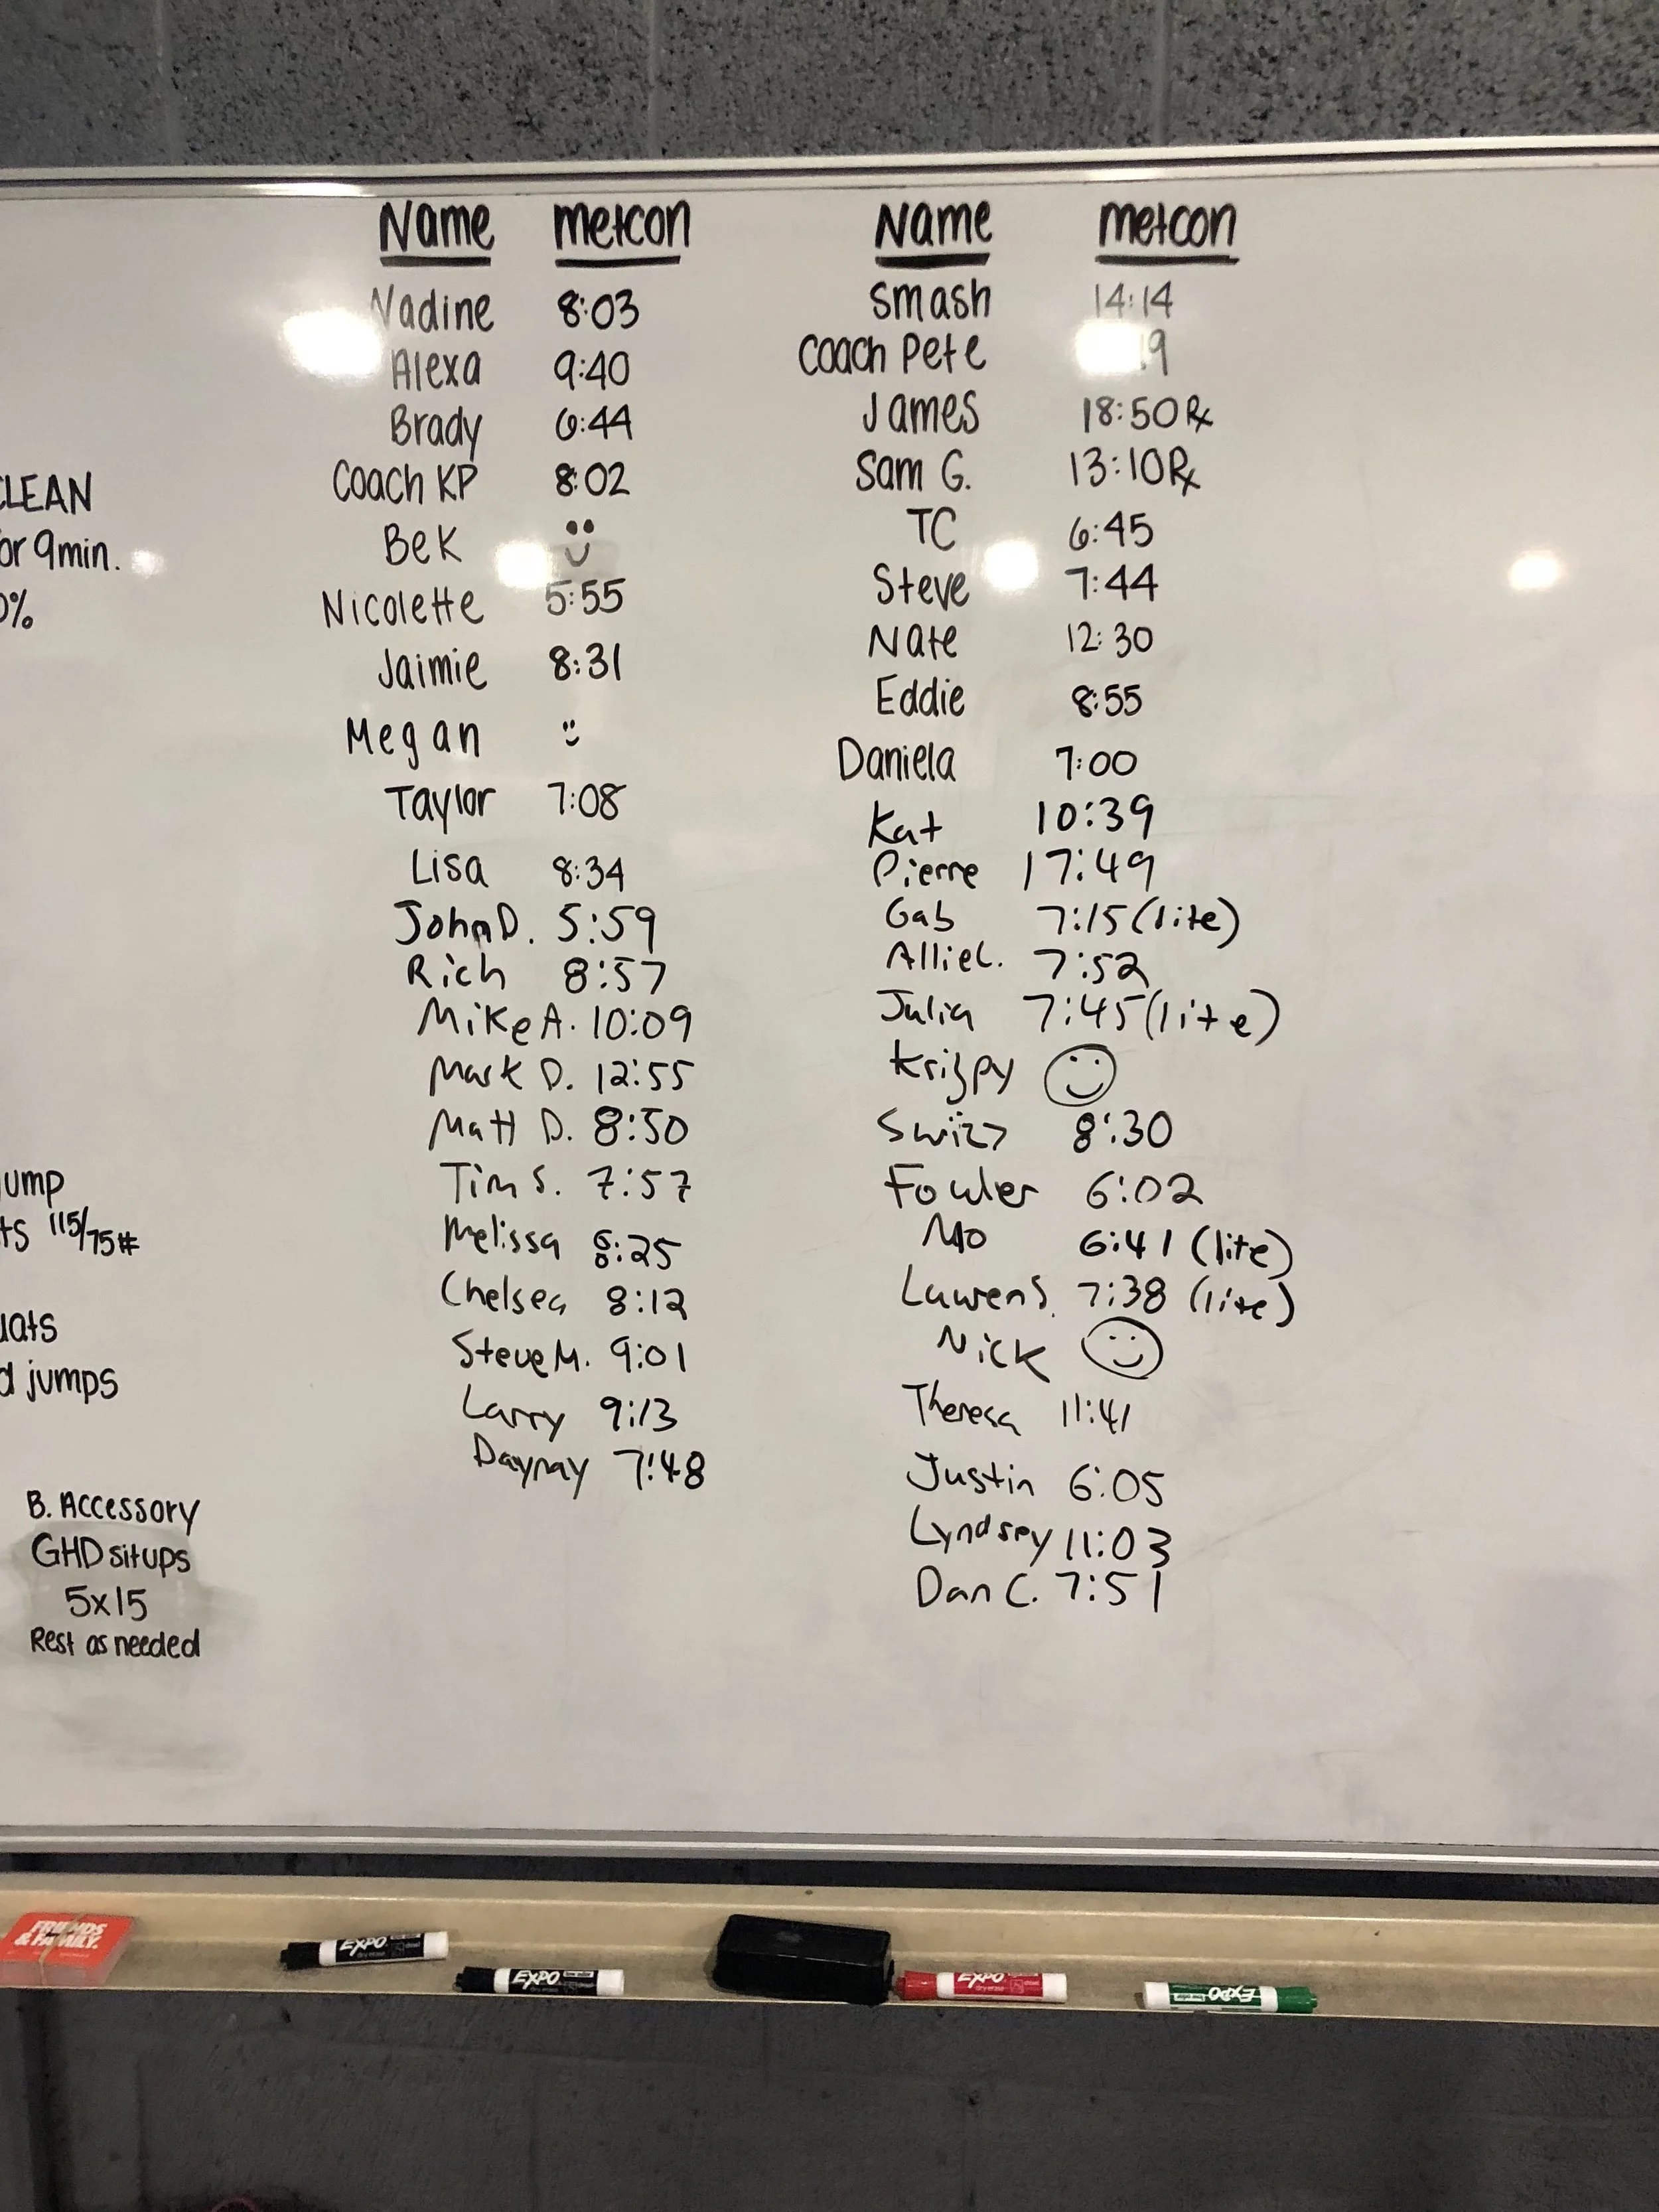 Name metcon
Nadine 8:03
Alexa 9:40
Brady 6:44
Coach KP 8:02
Bek
Nicolette 5:55
Jaimie 8:31
Megan
Taylor 7:08
Lisa 8:34
John D. 5:59
Rich 8:57
Mike A. 10:09
Mark D. 12:55
Matt D. 8:50
Tim S. 7:57
Melissa :25
Chelsea 8:12
Steve M. 9:01
Larry 9:13
Dayray 7:48
Name metcon
Smash 14:14
Coach Pete
James 18:50 Rx
Sam G. 13:10 Rx
TC 6:45
Steve 7:44
Nate 12:30
Eddie 8:55
Daniela 7:00
Kat 10:39
Pierre 17:49
Gab 7:15 (lite)
Allie C. 7:52
Julia 7:45 (lite)
Krizpy
Swizz 8:30
Fowler 6:02
Mo 6:41 (lite)
Lauren S. 7:38 (lite)
Nick
Theresa 11:41
Justin 6:05
Lyndsey 11:03
Dan C. 7:51
CLEAN
or 9min.
0%
ump
ts 115/75#
uats
d jumps
B. Accessory
GHD situps
5x15
Rest as needed
FRIENDS
& FAMILY.
EXPO
EXPO
EXPO
EXPO